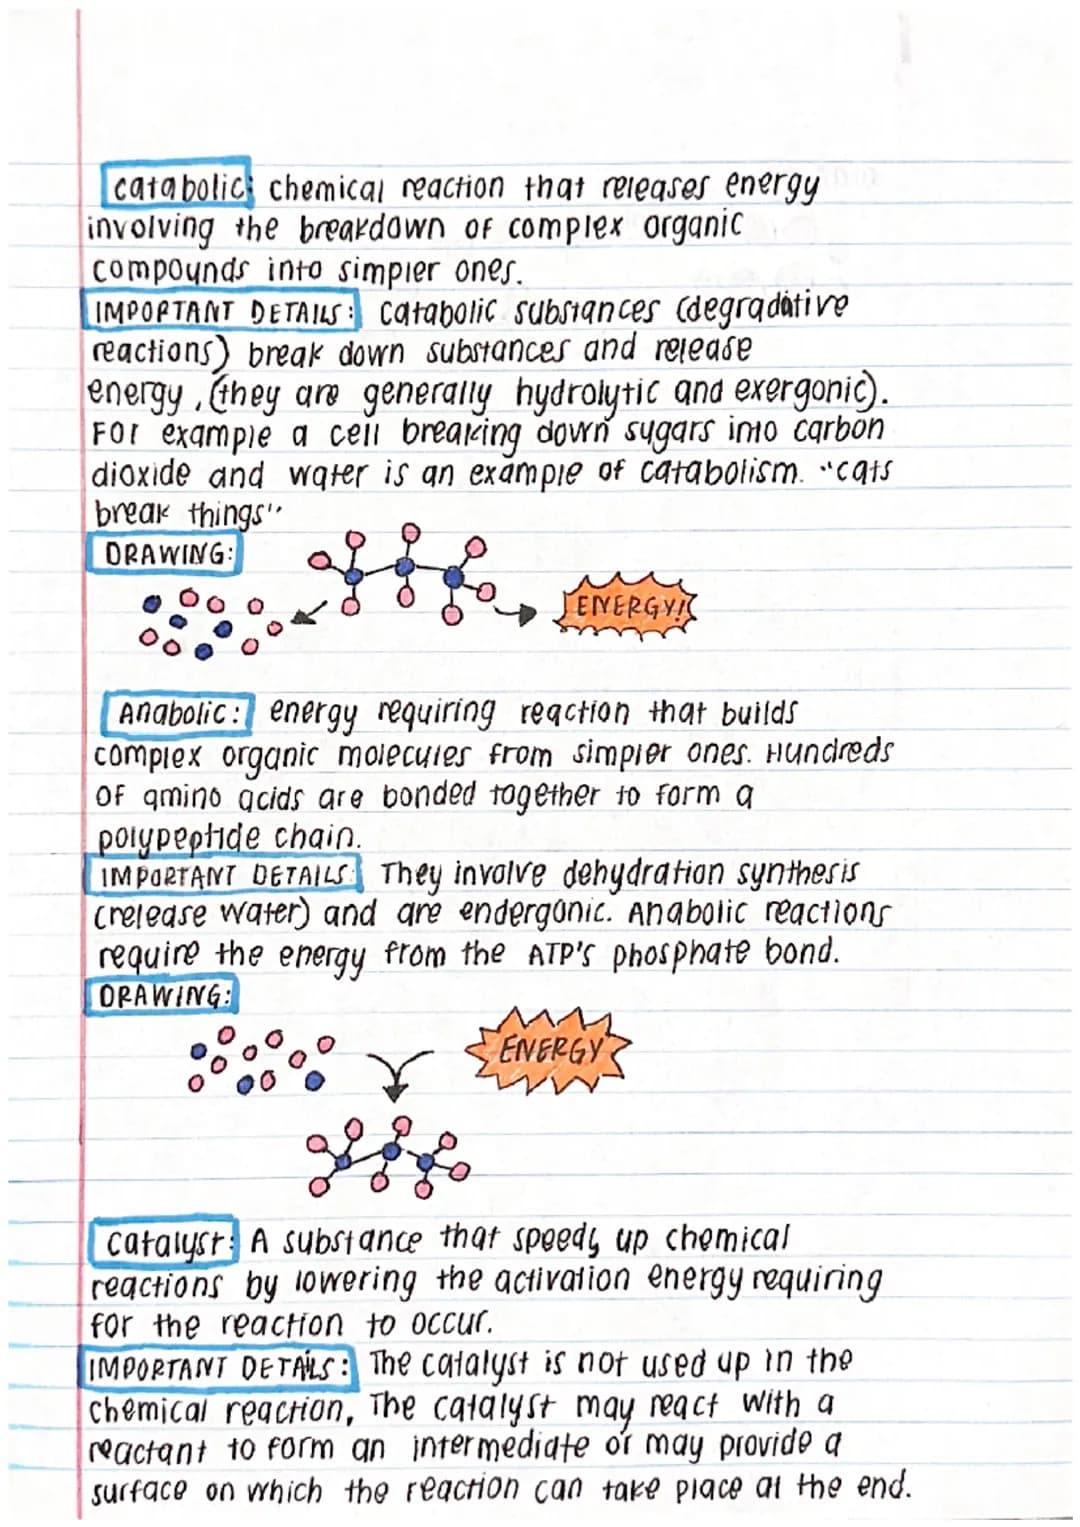 catabolic: chemical reaction that releases energy
involving the breakdown of complex organic
compounds into simpler ones.
IMPORTANT DETAILS: Catabolic substances (degradative
reactions) break down substances and release
energy, (they are generally hydrolytic and exergonic).
For example a cell breaking down sugars into carbon
dioxide and water is an example of catabolism. "cats
break things"
DRAWING:
ENERGY!
Anabolic: energy requiring reaction that builds
complex organic molecules from simpler ones. Hundreds
of amino acids are bonded together to form a
polypeptide chain.
IMPORTANT DETAILS: They involve dehydration synthesis
(release water) and are endergonic. Anabolic reactions
require the energy from the ATP's phosphate bond.
DRAWING:
ENERGY
Catalyst: A substance that speeds up chemical
reactions by lowering the activation energy requiring
for the reaction to occur.
IMPORTANT DETAILS: The catalyst is not used up in the
chemical reaction, The catalyst may react with a
reactant to form an intermediate or may provide a
surface on which the reaction can take place at the end.